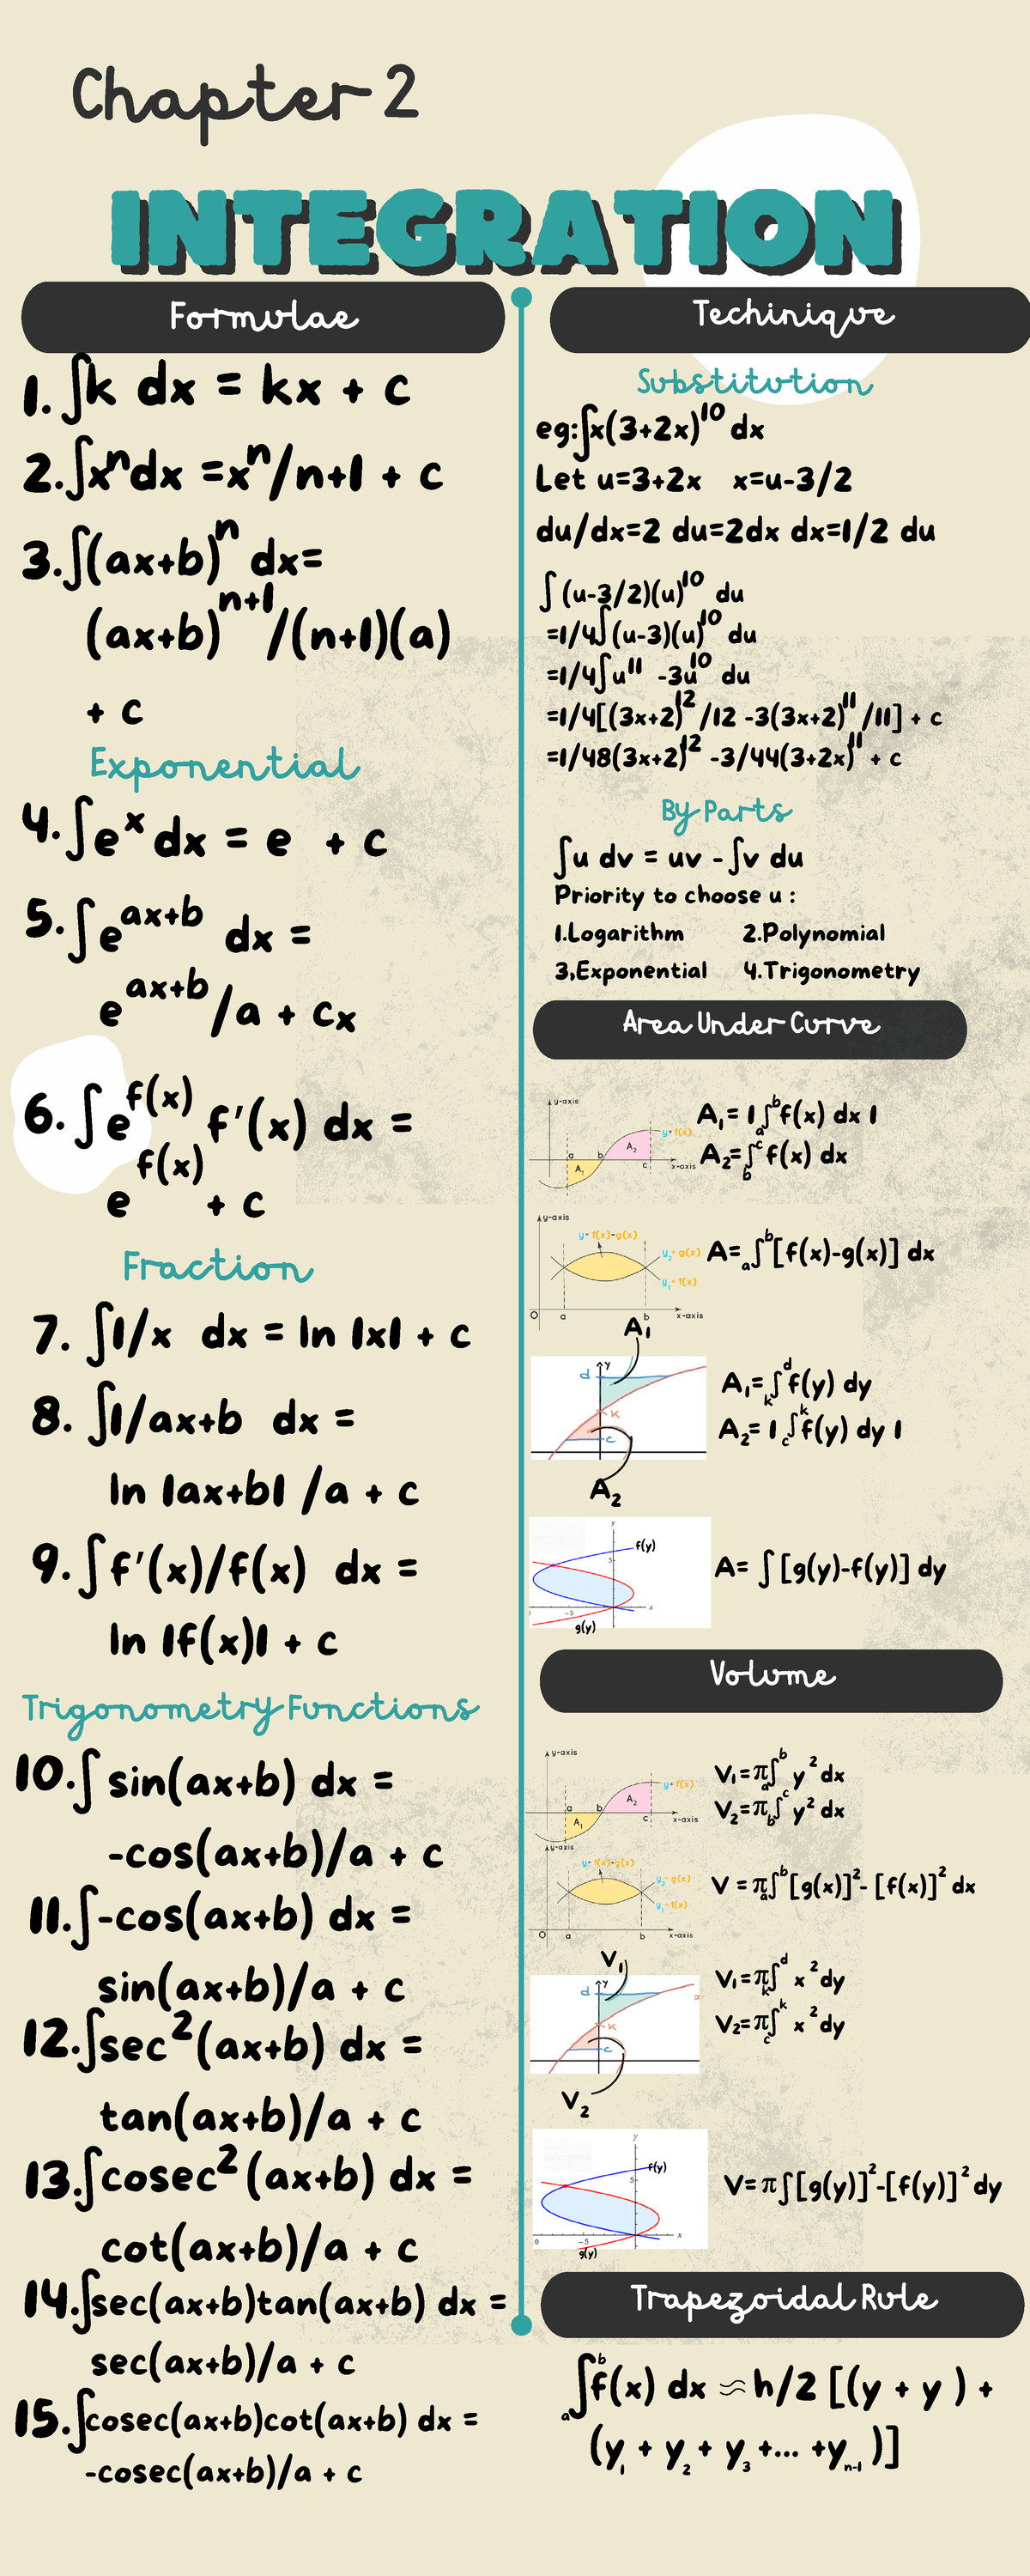 Chapter 2
INTEGRATION
Formulae
1. ∫k dx = kx + c
2. ∫xⁿdx =xⁿ/n+1 + c
3. ∫(ax+b)ⁿ dx=
(ax+b)ⁿ⁺¹/(n+1)(a)
+ c
Exponential
4. ∫e^x dx = e + c
5. ∫e^ax+b dx =
e^ax+b/a + cx
6. ∫e^f(x) f'(x) dx =
e^f(x) + c
Fraction
7. ∫1/x dx = ln |x| + c
8. ∫1/ax+b dx =
ln |ax+b| /a + c
9. ∫f'(x)/f(x) dx =
ln |f(x)| + c
Trigonometry Functions
10. ∫sin(ax+b) dx =
-cos(ax+b)/a + c
11. ∫-cos(ax+b) dx =
sin(ax+b)/a + c
12. ∫sec²(ax+b) dx =
tan(ax+b)/a + c
13. ∫cosec²(ax+b) dx =
cot(ax+b)/a + c
14. ∫sec(ax+b)tan(ax+b) dx =
sec(ax+b)/a + c
15. ∫cosec(ax+b)cot(ax+b) dx =
-cosec(ax+b)/a + c
Techinique
Substitution
eg:∫x(3+2x)¹⁰ dx
Let u=3+2x x=u-3/2
du/dx=2 du=2dx dx=1/2 du
∫(u-3/2)(u)¹⁰ du
=1/4∫(u-3)(u)¹⁰ du
=1/4∫u¹¹ -3u¹⁰ du
=1/4[(3x+2)¹²/12 -3(3x+2)¹¹/11] + c
=1/48(3x+2)¹² -3/44(3+2x)¹¹ + c
By Parts
∫u dv = uv - ∫v du
Priority to choose u :
1.Logarithm 2.Polynomial
3,Exponential 4.Trigonometry
Area Under Curve
y-axis
y= f(x)
A₂
a b
A₁ c x-axis
A₁= |ₐ∫ᵇf(x) dx |
A₂= b∫ᶜf(x) dx
y-axis
y= f(x)-g(x)
y₂= g(x)
y₁= f(x)
O a b x-axis
A=ₐ∫ᵇ[f(x)-g(x)] dx
A₁
y
d
k
c
A₂
A₁= k∫ᵈf(y) dy
A₂= | c∫ᵏf(y) dy |
y
f(y)
5
-5 x
g(y)
A= ∫[g(y)-f(y)] dy
Volume
y-axis
y= f(x)
A₂
a b
A₁ c x-axis
V₁=πₐ∫ᵇ y² dx
V₂=π b∫ᶜ y² dx
y-axis
y= f(x)-g(x)
y₂= g(x)
y₁= f(x)
O a b x-axis
V =πₐ∫ᵇ[g(x)]²- [f(x)]² dx
V₁
y
d
k
c
V₂
V₁=π k∫ᵈ x²dy
V₂=π c∫ᵏ x²dy
y
f(y)
5
0 -5 x
g(y)
V=π∫[g(y)]²-[f(y)]²dy
Trapezoidal Rule
ₐ∫ᵇf(x) dx ≈ h/2 [(y + y ) +
(y₁ + y₂ + y₃ +... +yₙ₋₁ )]